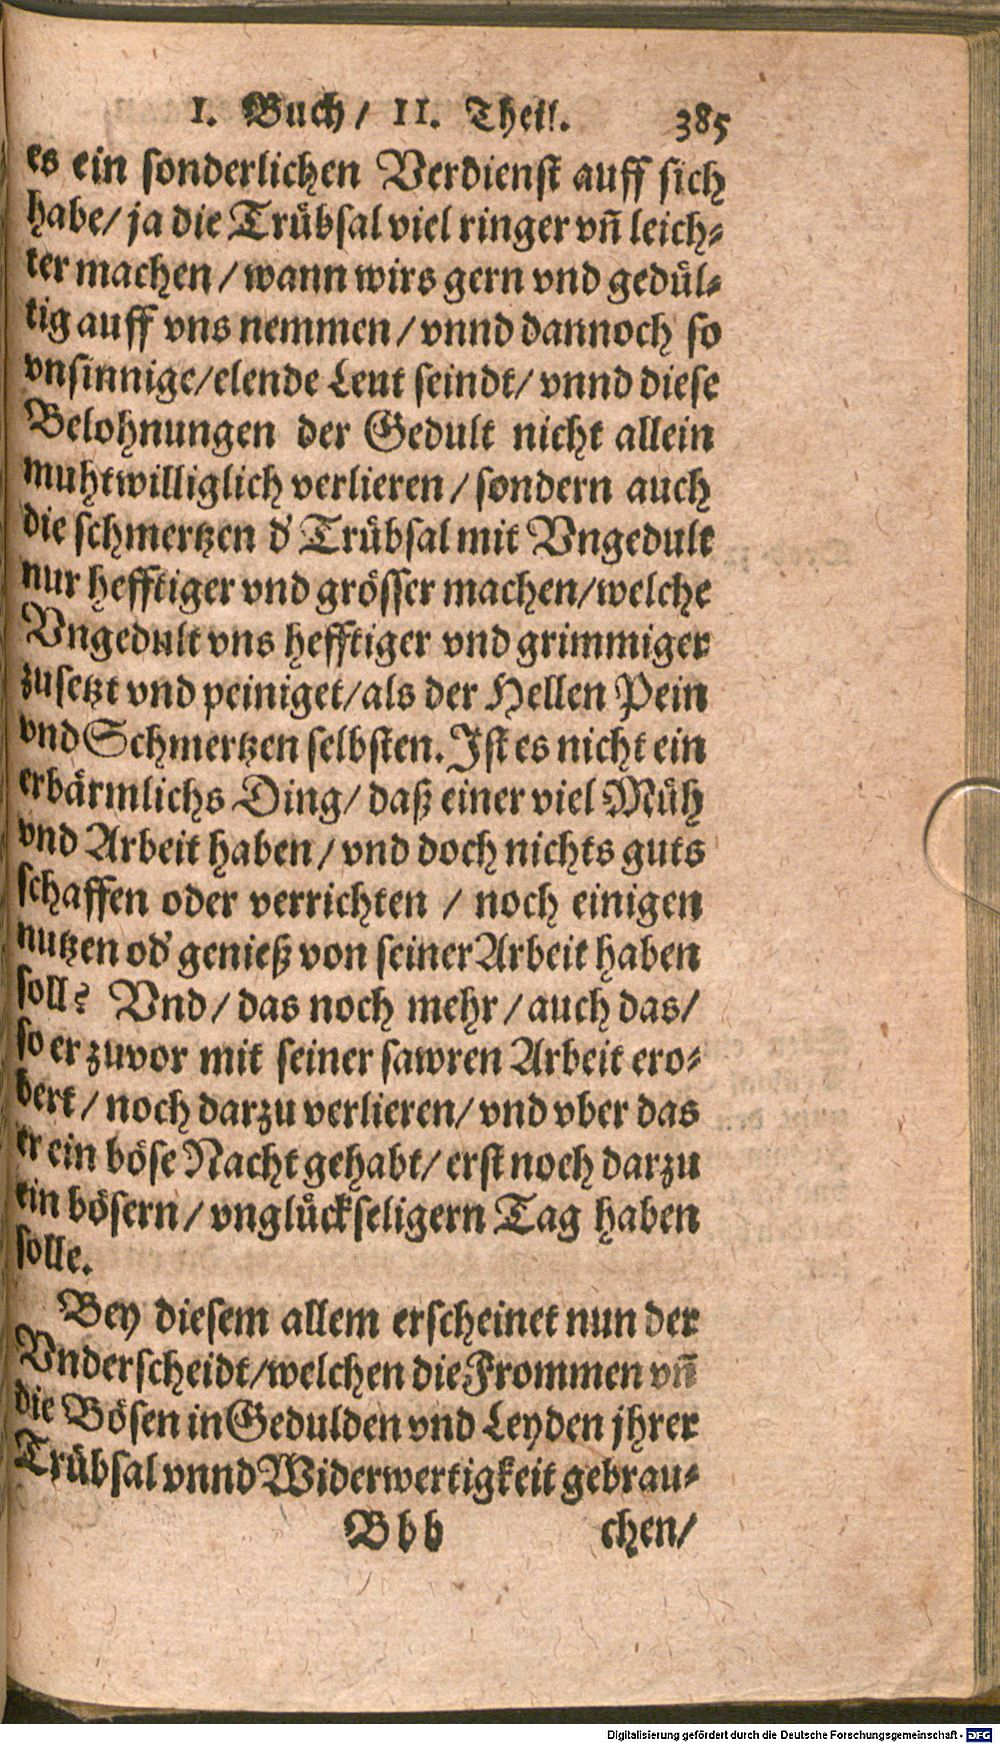 I. Buch/ II. Theil. 385
es ein sonderlichen Verdienst auff sich
habe/ ja die Trübsal viel ringer vñ leich-
ter machen/ wann wirs gern vnd gedül-
tig auff vns nemmen/ vnnd dannoch so
vnsinnige/ elende Leut seindt/ vnnd diese
Belohnungen der Gedult nicht allein
muhtwilliglich verlieren/ sondern auch
die schmertzen d' Trübsal mit Vngedult
nur hefftiger vnd grösser machen/ welche
Vngedult vns hefftiger vnd grimmiger
zusetzt vnd peiniget/ als der Hellen Pein
vnd Schmertzen selbsten. Ist es nicht ein
erbärmlichs Ding/ daß einer viel Müh
vnd Arbeit haben/ vnd doch nichts guts
schaffen oder verrichten/ noch einigen
nutzen od' genieß von seiner Arbeit haben
soll? Vnd/ das noch mehr/ auch das/
so er zuvor mit seiner sawren Arbeit ero-
bert/ noch darzu verlieren/ vnd vber das
er ein böse Nacht gehabt/ erst noch darzu
ein bösern/ vnglückseligern Tag haben
solle.
Bey diesem allem erscheinet nun der
Vnderscheidt/ welchen die Frommen vñ
die Bösen in Gedulden vnd Leyden jhrer
Trübsal vnnd Widerwertigkeit gebrau-
Bbb chen/
Digitalisierung gefördert durch die Deutsche Forschungsgemeinschaft - DFG